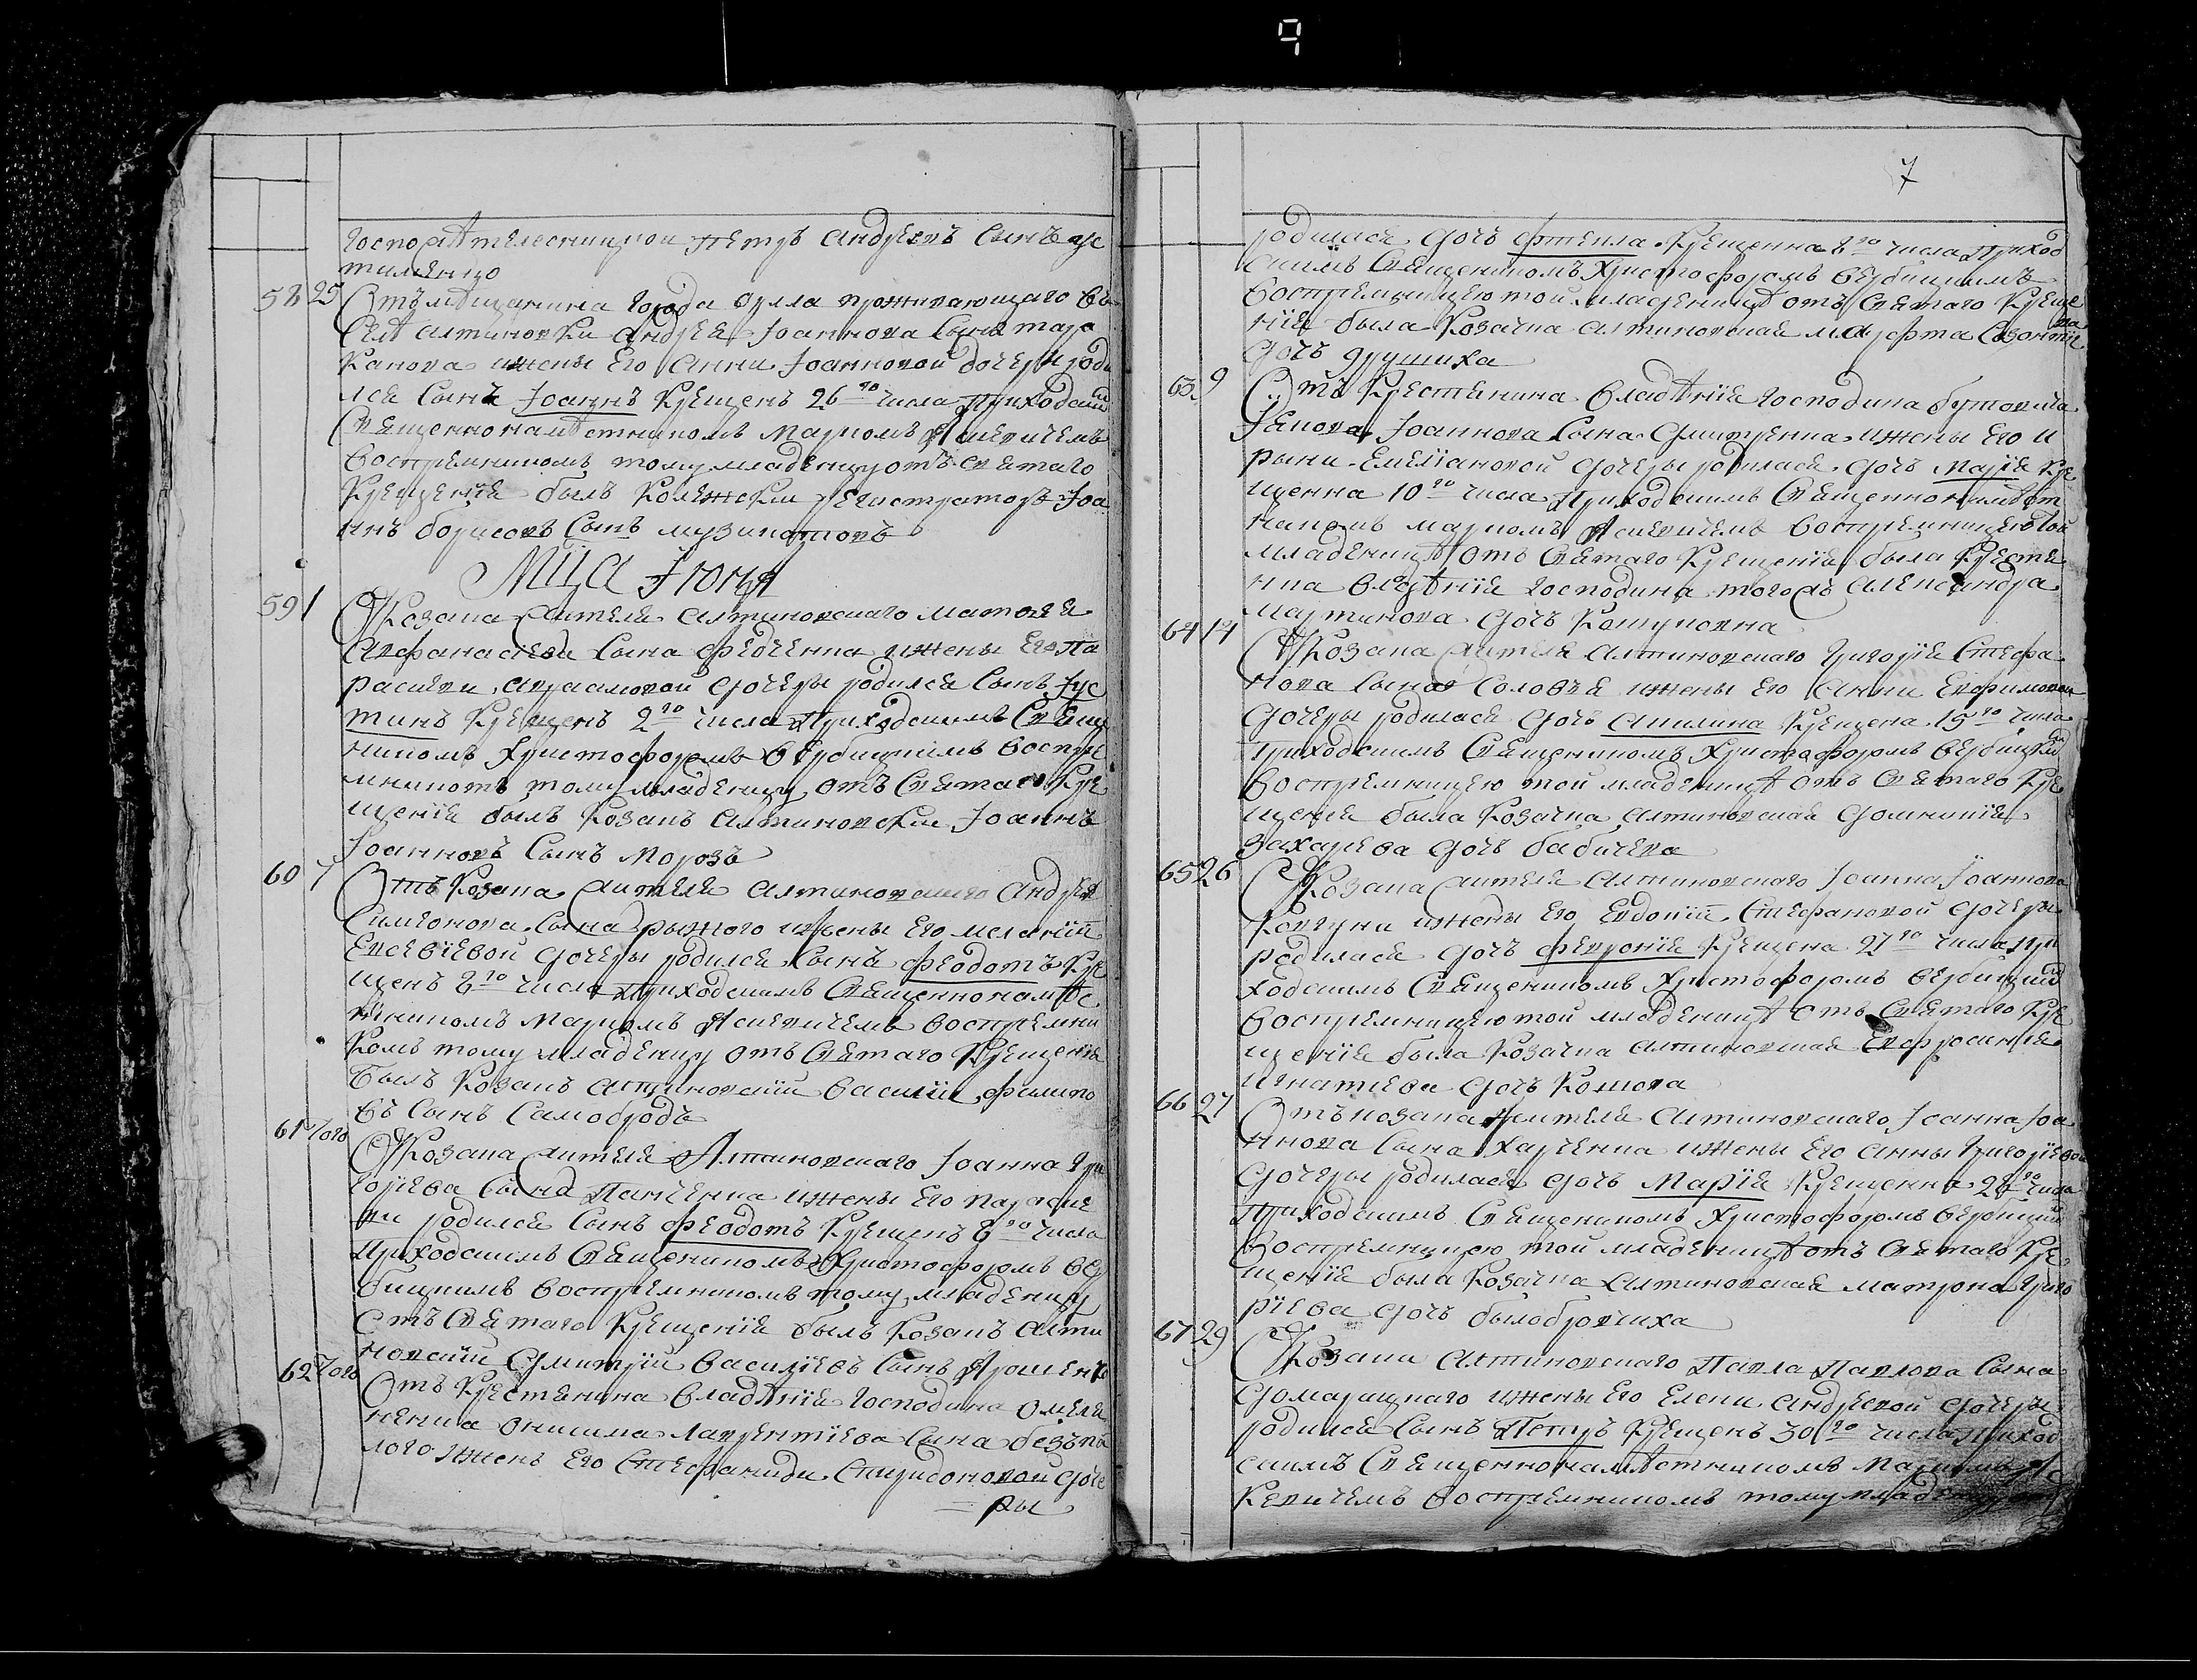 9
Петръ Андреевъ Сынъ
58 25 Отъ мѣщанина города Орла проживающаго въ
Селѣ Алтиновки Андрея Іоаннова Сына тара
канова ижены Его Анны Іоанновой дочери роди
лся Сынъ Іоаннъ Крещенъ 26го числа Приходским
Священнонамѣстникомъ Маркомъ
воспрѣмникомъ тому младенцу отъ святаго
Крещенія былъ Колежски регистраторъ Іоа
ннъ борисовъ Сынъ
Мца Іюня
59 1 От Козака жителя Алтиновскаго Матфея
Афанасиева Сына Федченка ижены Его Па
раскеви Авраамовой дочеры родился Сынъ Іус
тинъ Крещенъ 2го числа Приходскимъ Свяще
никомъ Христофоромъ вербицкимъ воспрѣ
мникомъ тому младенцу отъ Святаго Кре
щенія былъ Козакъ Алтиновски Іоаннъ
Іоанновъ Сынъ Морозъ
60 7 Отъ Козака жителя Алтиновскаго Андрея
Симеонова Сына рыжого ижены Его меланіи
Евсевіевой дочеры родился Сынъ Феодотъ Кре
щенъ 8го числа Приходскимъ Священнонамѣс
тникомъ Маркомъ воспрѣмни
комъ тому младенцу отъ Святаго Крещенія
былъ Козакъ Алтиновскій василій филипо
въ Сынъ Самобродъ
61 7ого От Козака жителя Алтиновскаго Іоанна Гри
горіева Сына Панченка ижены Его параске
ви родился Сынъ Феодотъ Крещенъ 8го числа
Приходскимъ Священикомъ Христофоромъ ве
бицкимъ воспрѣмникомъ тому младенцу
отъ Святаго Крещенія былъ Козакъ Алти
новскій Дмитрій василіевъ Сынъ Ярошенко
62 7ого Отъ Крестянина владѣнія господина Омеля
ненка Онисима Лаврентіева Сына
лого ижены Его Стефаниди Спиридоновой доче
ры
7
родилася дочъ Фтекла Крещенна 8го числа Приход
скимъ Священикомъ Христофоромъ Вербицкимъ
воспрѣмницею той младеницѣ отъ Святаго Креще
нія была Козачка Алтиновская
дочъ
63 9 Отъ Крестянина владѣнія господина бутовича
Іакова Іоаннова Сына Дмитренка ижены Его И
рыни Емеліановой дочеры родилася дочъ Марія Кре
щенна 10го числа Приходскимъ Священнонамѣст
никомъ маркомъ воспрѣмницею той
младеницѣ отъ Святаго Крещенія была Крестя
нка владѣнія господина того жъ Александра
Мартинова дочъ
64 14 От Козака жителя Алтиновскаго Григорія Стефа
нова Сына Соловья ижены Его Анни Евфимовой
дочеры родилася дочъ Акилина Крещена 15го числа
Приходскимъ Священикомъ Христофоромъ вербицким
воспрѣмницею той младеницѣ отъ Святаго Кре
щенія была Козачка Алтиновская Домникія
Захарева дочъ бабичева
65 26 От Козака жителя Алтиновскаго Іоанна Іоаннова
Ковтуна ижены Его Евдокіи Стефановой дочеры
родилася дочъ Февронія Крещена 27го числа При
ходскимъ Священикомъ Христофоромъ вербицким
воспрѣмницею той младеницѣ отъ Святаго Кре
щенія была Козачка Алтиновская Евфросинія
Игнатіева дочъ
66 27 Отъ козака жителя Алтиновскаго Іоанна Іоа
ннова Сына Харченка ижены Его Анны Григоріевой
дочеры родилася дочъ Марія Крещенна 28го числа
Приходскимъ Священикомъ Христофоромъ вербицким
воспрѣмницею той младеницѣ отъ Святаго Кре
щенія была Козачка Алтиновская матрона Григо
ріева дочъ
67 29 От Козака Алтиновскаго Павла Павлова Сына
Домарицкаго ижены Его Елени Андреевой дочеры
родился Сынъ Петръ Крещенъ 30го числа приход
скимъ Священнонамѣстникомъ Маркомъ
воспрѣмникомъ тому младенцу